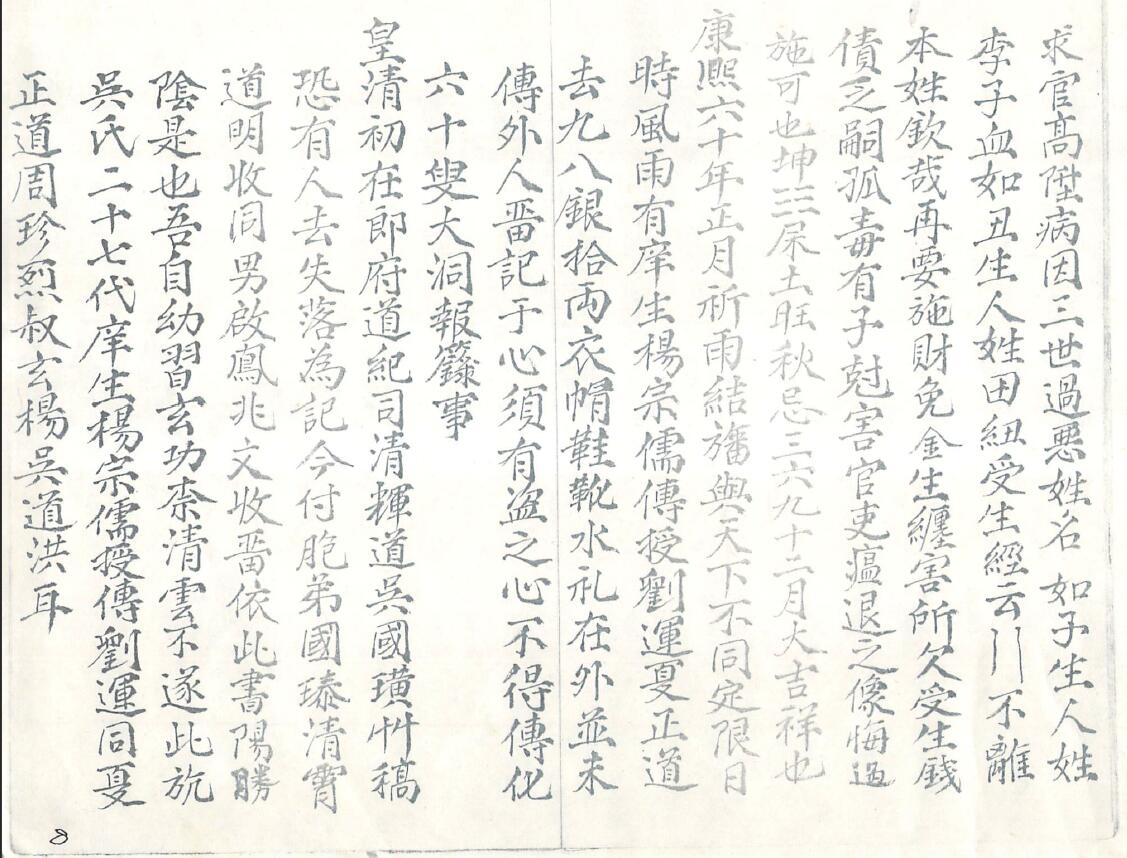 求官高陞病因三世過恶姓名 如子生人姓
李子血如丑生人姓田紐受生經云〢不離
本姓欽哉再要施財免金生纏害所欠受生錢
債乏嗣孤毒有子尅害官吏瘟退之像悔過
施可也坤三屎土旺秋忌三六九十二月大吉祥也
康熈六十年正月祈雨結旛與天下不同定限日
時風雨有庠生楊宗儒傳授劉運夏正道
去九八銀拾両衣帽鞋靴水礼在外並未
傳外人畱記于心須有盗之心不得傳化
六十㪅大洞報籙事
皇清初在郎府道紀司清輝道吳國璜艸稿
恐有人去失落為記今付胞弟國瑧清霄
道明收洞男啟鳳兆文收畱依此書陽勝
陰是也吾自幼習玄功柰清雲不遂此旊
吳氏二十七代庠生楊宗儒授傳劉運同夏
正道周珍烈叔玄楊吳道洪耳
8